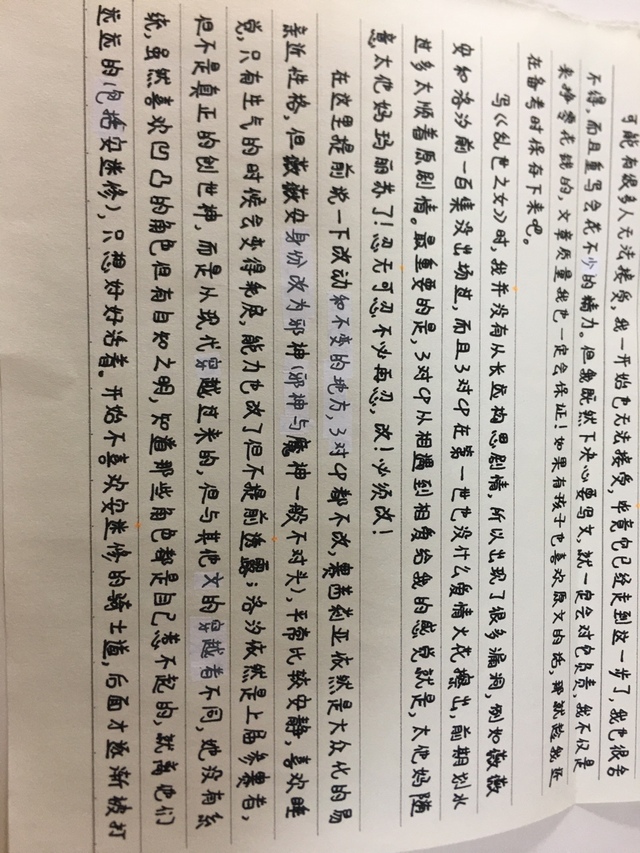 可能有很多人无法接受,我一开始也无法接受,毕竟也已经走到这一步了,我也很舍
不得,而且重写会花不少的精力。但我既然下决心要写文,就一定会对它负责,我不仅是
来挣零花钱的,文章质量我也一定会保证!如果有孩子也喜欢原文的话,那就趁我还
在备考时保存下来吧。
写《乱世之女》时,我并没有从长远构思剧情,所以出现了很多漏洞,例如薇薇
安和洛汐前一百集没出场过,而且3对CP在第一世也没什么爱情火花擦出,前期划水
过多太顺着原剧情。最重要的是,3对CP从相遇到相爱给我的感觉就是,太他妈随
意太他妈玛丽苏了!忍无可忍不必再忍,改!必须改!
在这里提前说一下改动和不变的地方,3对CP都不改,赛西利亚依然是大众化的易
亲近性格,但薇薇安身份改为邪神(邪神与魔神一般不对头),平常比较安静,喜欢睡
觉,只有生气的时候会变得毒戾,能力也改了但不提前透露;洛汐依然是上届参赛者,
但不是真正的创世神,而是从现代穿越过来的,但与其他文的穿越者不同,她没有系
统,虽然喜欢凹凸的角色但有自知之明,知道那些角色都是自己惹不起的,就离他们
远远的(包括安迷修),只想好好活着。开始不喜欢安迷修的骑士道,后面才逐渐被打